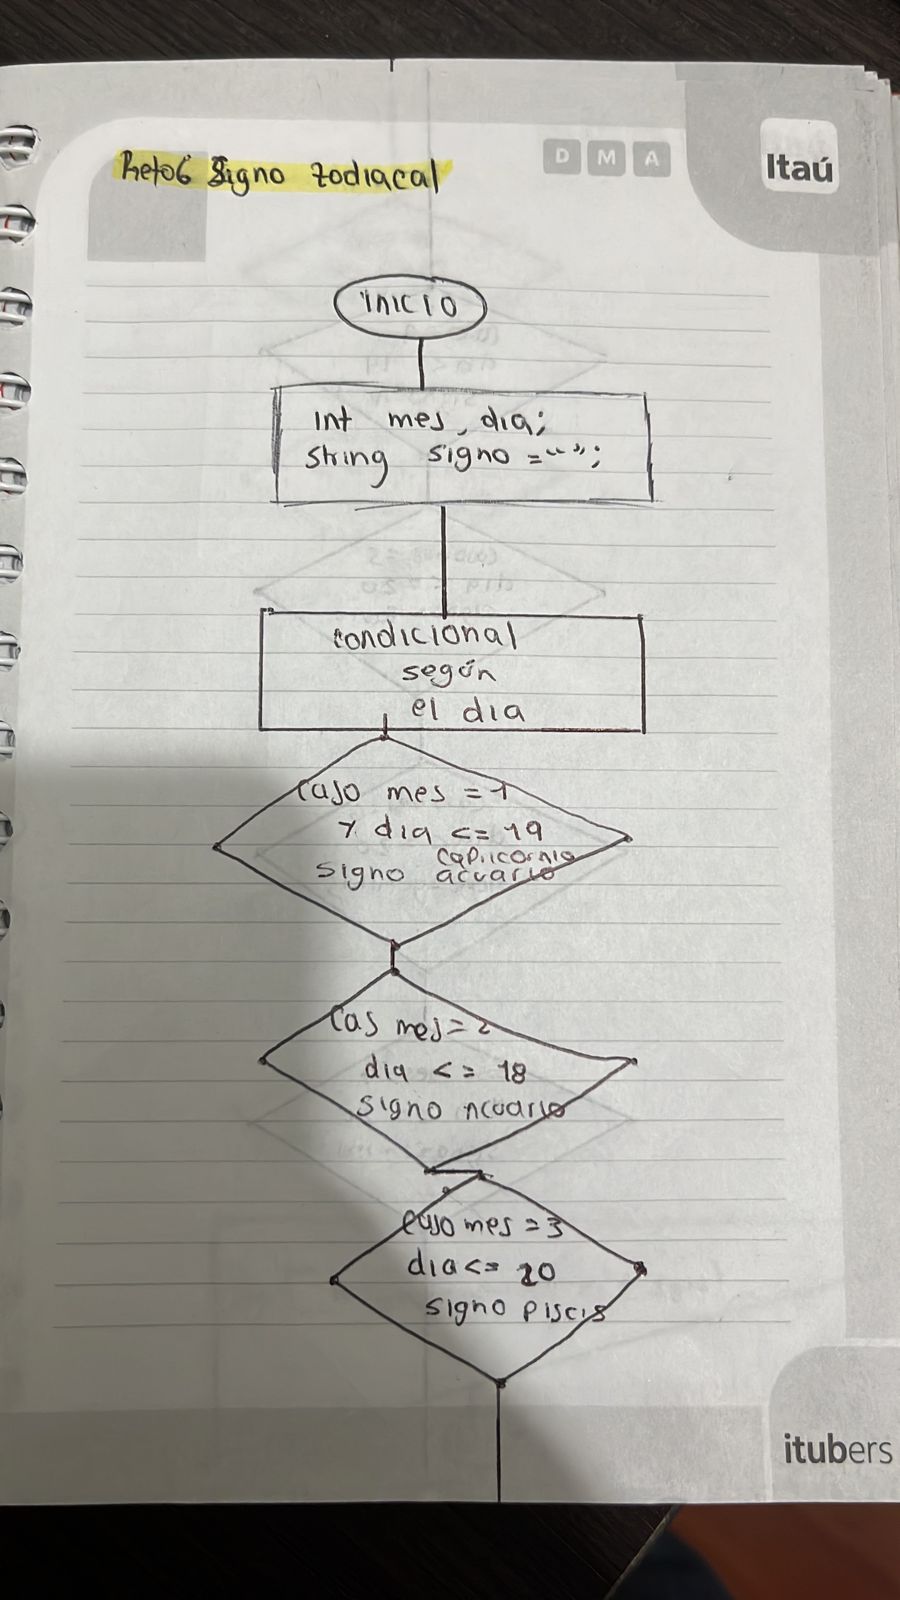 Reto6 Signo zodiacal
D M A
Itaú
inicio
int mes, dia;
string signo = "";
condicional
según
el dia
Caso mes = 1
y dia <= 19
capricornio
signo acuario
Cas mes = 2
dia <= 18
signo acuario
Caso mes = 3
dia <= 20
signo piscis
itubers